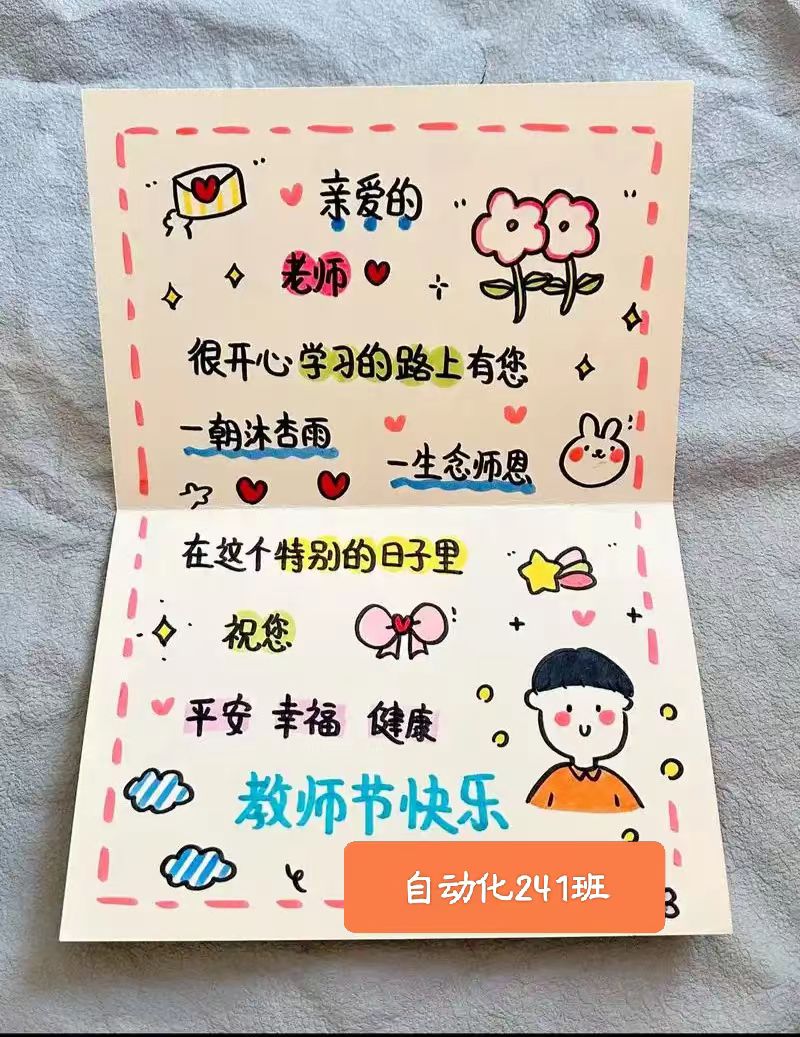 亲爱的
老师
很开心学习的路上有您
一朝沐杏雨
一生念师恩
在这个特别的日子里
祝您
平安 幸福 健康
教师节快乐
自动化241班